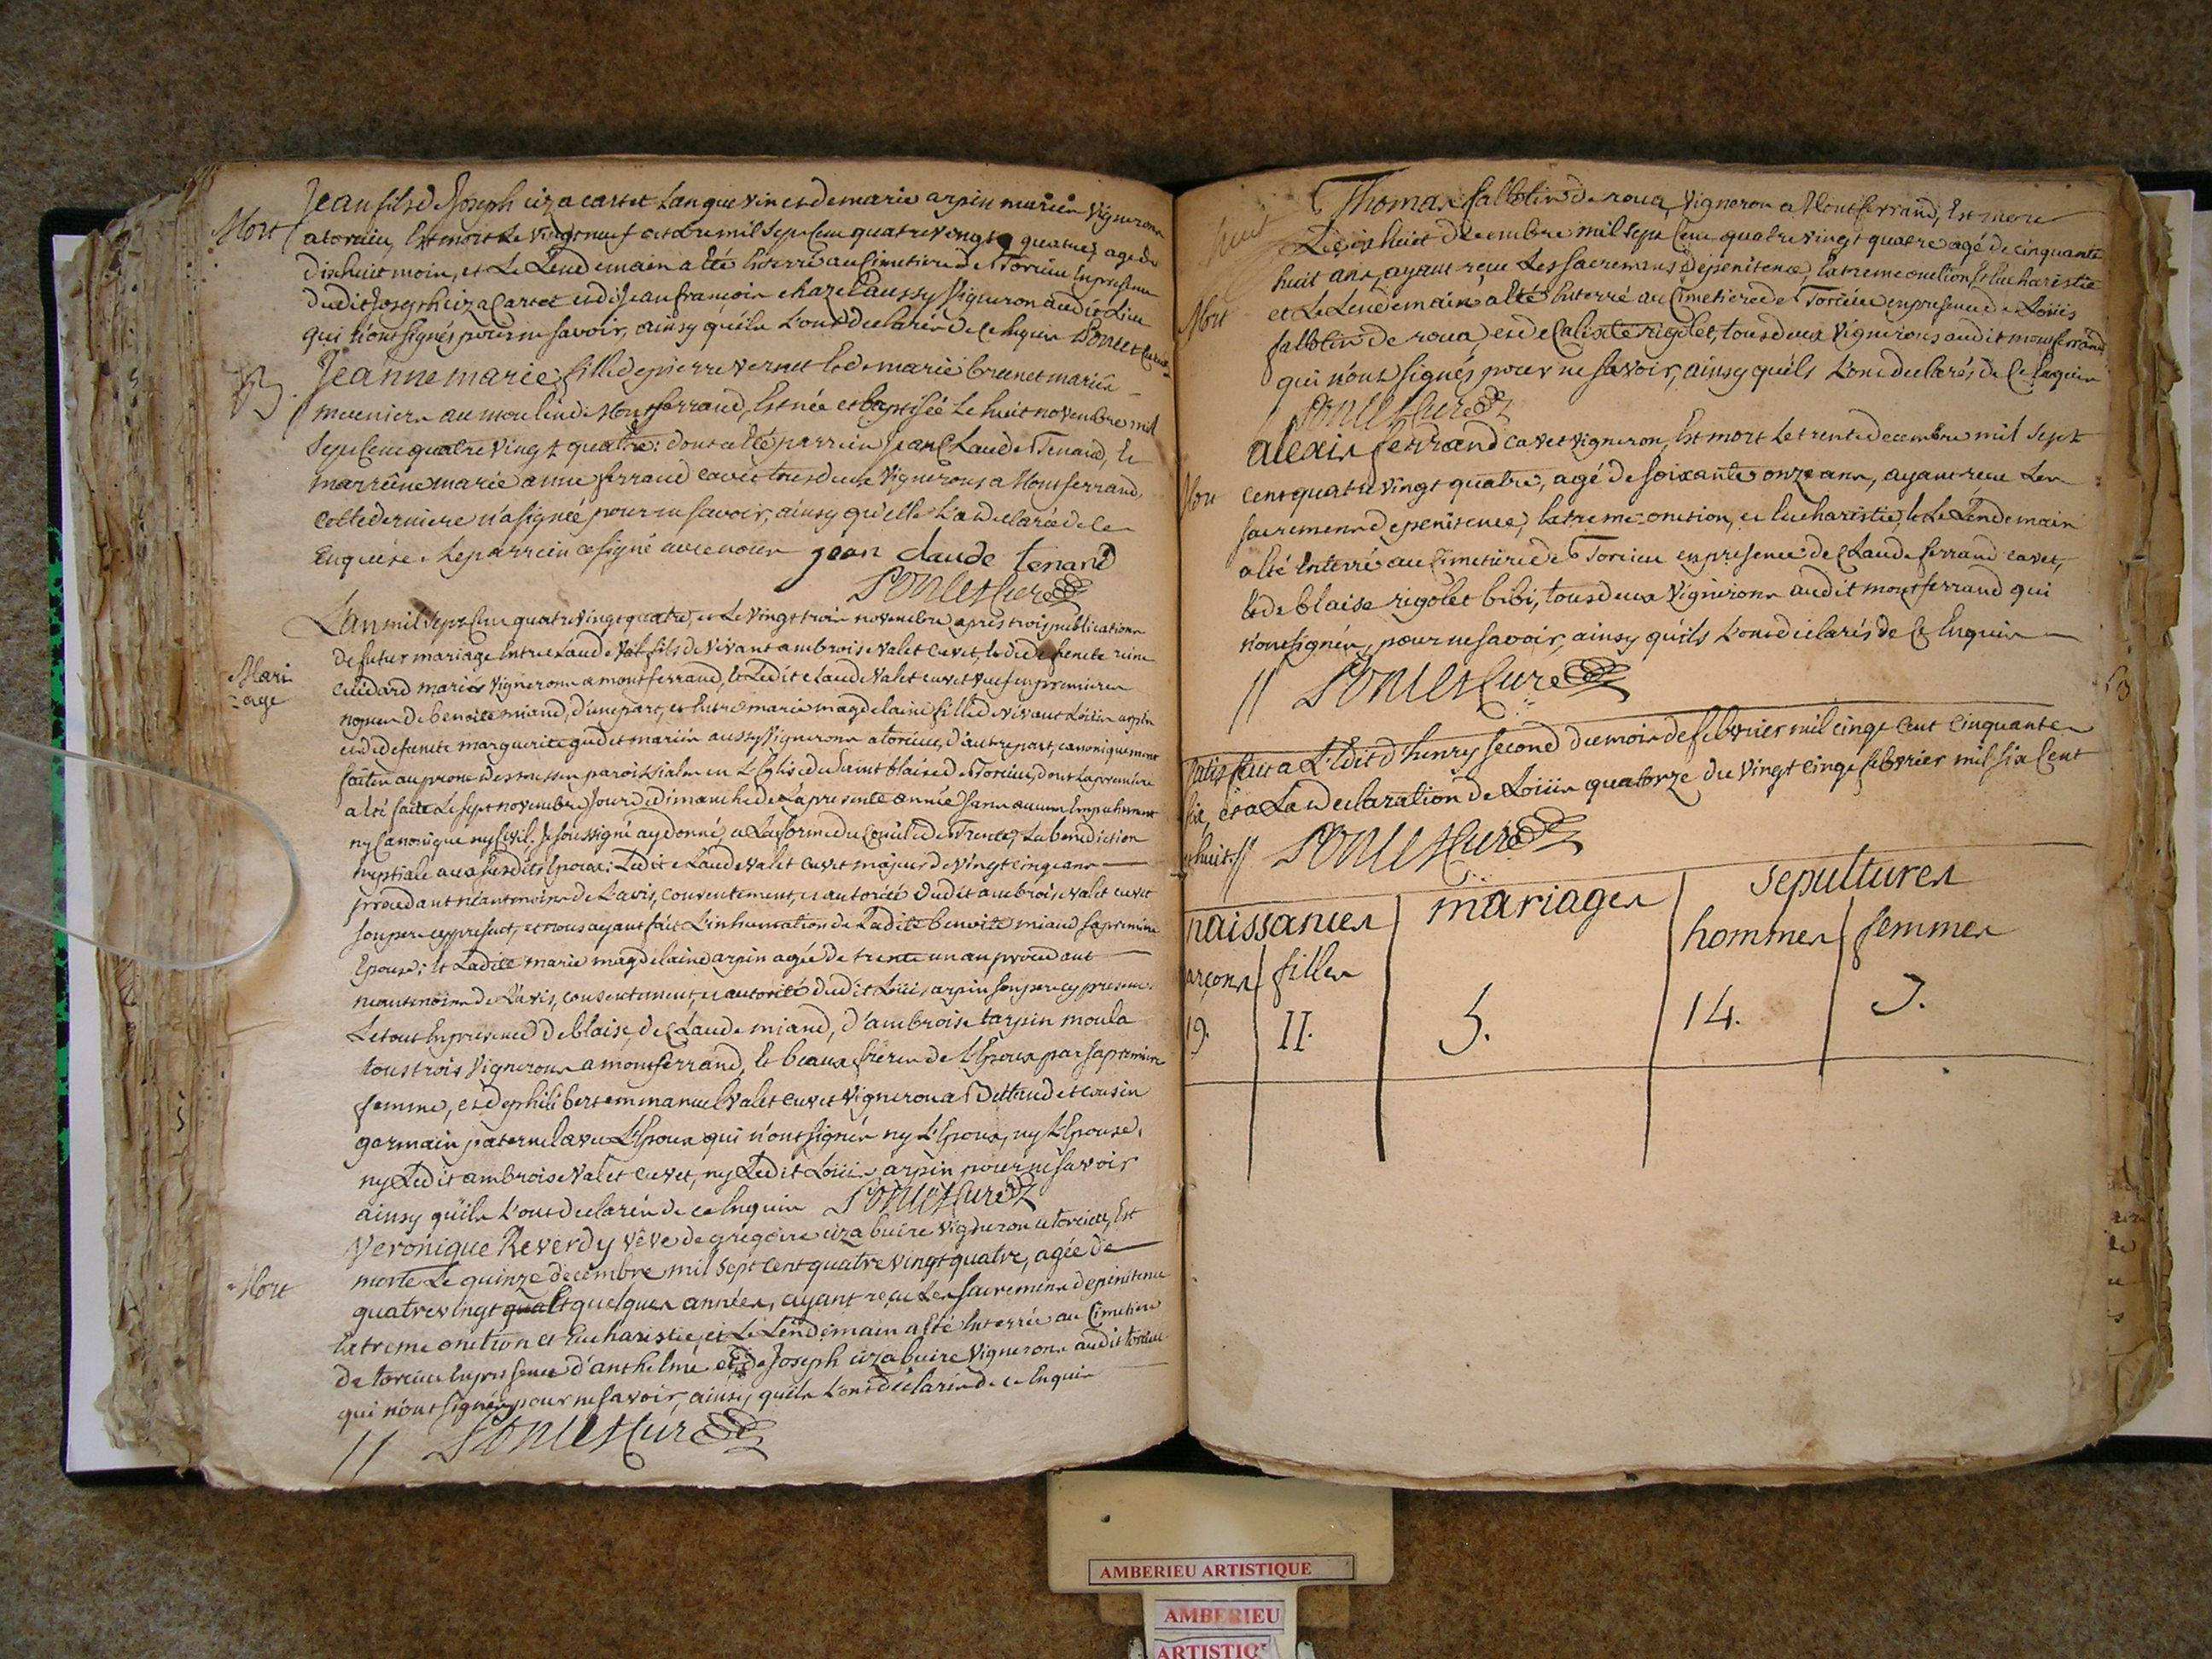 Jean fils de Joseph ciza carret Langue vin et de marie arpin mariés Vignerons
Mort
a torcieu, Est mort Le vingt neuf octobre mil Sept Cent quatre vingt quatre, agé de
dixhuit mois, et Le Lendemain a été Enterré au Cimetiere de Torcieu En presence
dudit Joseph ciza Carret et de Jean francois chazel aussy Vigneron audit Lieu
qui n'ont signés pour ne savoir, ainsy qu'ils L'ont declarés de Ce Enquis Curé
B.
Jeanne marie fille de pierre vernet Et de marie brunet mariés
meuniers au moulin de Montferrand, Est née et baptisée Le huit novembre mil
Sept Cent quatre vingt quatre: dont a été parrein Jean Claude Tenand, Et
marreine marie anne ferrand cavet tous deux Vignerons a Montferrand,
Cette derniere n'a signée pour ne savoir, ainsy qu'elle L'a declarée de Ce
Enquise. Le parrein a signé avec nous jean claude tenand
Curé
L'an mil Sept Cent quatre vingt quatre, et Le Vingt trois novembre après trois publications
de futur mariage Entre Claude Valet fils de vivant ambroise valet cuvet, et de defuncte reine
Mari
-age
mariés Vignerons a montferrand, Et Ledit Claude Valet cuvet veuf en premieres
nopces de benoite miand, d'une part, et Entre marie magdelaine fille de vivant Loüis arpin
et de defuncte marguerite gudet mariés aussy Vignerons a torcieu, d'autre part, canoniquement
faites au prone des messes paroissiales en L'Eglise de Saint blaise de Torcieu, dont La premiere
a été faite Le sept novembre Jour de dimanche de La presente année sans aucun Empechement
ny Canonique ny Civil. Je soussigné ay donné, a La forme du Concile de Trente, La benediction
nuptiale aux susdits Epoux: Ledit Claude valet cuvet majeur de vingt cinq ans
procedant néantmoins de L'avis, consentement, et autorité dudit ambroise valet cuvet
son pere cy present, et nous ayant fait L'inhumation de Ladite benoite miand sa premiere
Epouse; Et Ladite marie magdelaine arpin agée de trente un an procedant
neantmoins de L'avis, consentement, et autorité dudit Loüis arpin son pere cy present.
Le tout En presence de blaise, de Claude miand, d'ambroise tarpin moula
tous trois Vignerons a montferrand, Et beaux freres de L'Epoux par sa premiere
femme, et de philibert emmanuel valet cuvet Vigneron a et cousin
germain paternel avec L'Epoux qui n'ont signés ny L'Epoux, ny L'Epouse,
ny Ledit ambroise valet cuvet, ny Ledit Loüis arpin pour ne savoir
ainsy qu'ils L'ont declarés de ce Enquis Curé
Veronique Reverdy vêve de gregoire ciza buire Vigneron a torcieu, Est
Mort
morte Le quinze decembre mil Sept Cent quatre vingt quatre, agée de
quatre vingt quelques années, ayant reçu Les sacremens de penitence
Extreme onction et Eucharistie, et Le Lendemain a été Enterrée au Cimetiere
de torcieu En presence d'anthelme et de Joseph ciza buire Vignerons audit torcieu
qui n'ont signés pour ne savoir, ainsy qu'ils L'ont déclarés de ce Enquis
// Curé
Thomas fallotin de roua, Vigneron a Montferrand, Est mort
Le dixhuit decembre mil Sept Cent quatre vingt quatre agé de cinquante
huit ans, ayant reçu Les sacremens de penitence, Extreme onction, Et Eucharistie
Mort
et Le Lendemain a été Enterré au Cimetiere de Torcieu en presence de Loüis
fallotin de roua, et de Calixte rigolet, tous deux Vignerons audit montferrand
qui n'ont signés pour ne savoir, ainsy qu'ils L'ont declarés de Ce Enquis
Curé
alexis ferrand cavet vigneron, Est mort Le trente decembre mil Sept
Mort
Cent quatre vingt quatre, agé de soixante onze ans, ayant recu Les
sacremens de penitence, Extreme-onction, et Eucharistie, Et Le Lendemain
a été Enterré au Cimetiere de Torcieu en presence de Claude ferrand cavet,
Et de blaise rigolet bibi, tous deux Vignerons audit montferrand qui
n'ont signés, pour ne savoir, ainsy qu'ils L'ont déclarés de Ce Enquis
// Curé
Satisfait a L'Edit d'henry second du mois de febvrier mil cinq Cent Cinquante
six, et a La declaration de Loüis quatorze du vingt cinq febvrier mil six Cent
huit // Curé
naissances mariages sepultures
garçons filles hommes femmes
19. II. 5. 14. 3.
AMBERIEU ARTISTIQUE
AMBERIEU
ARTISTIQ